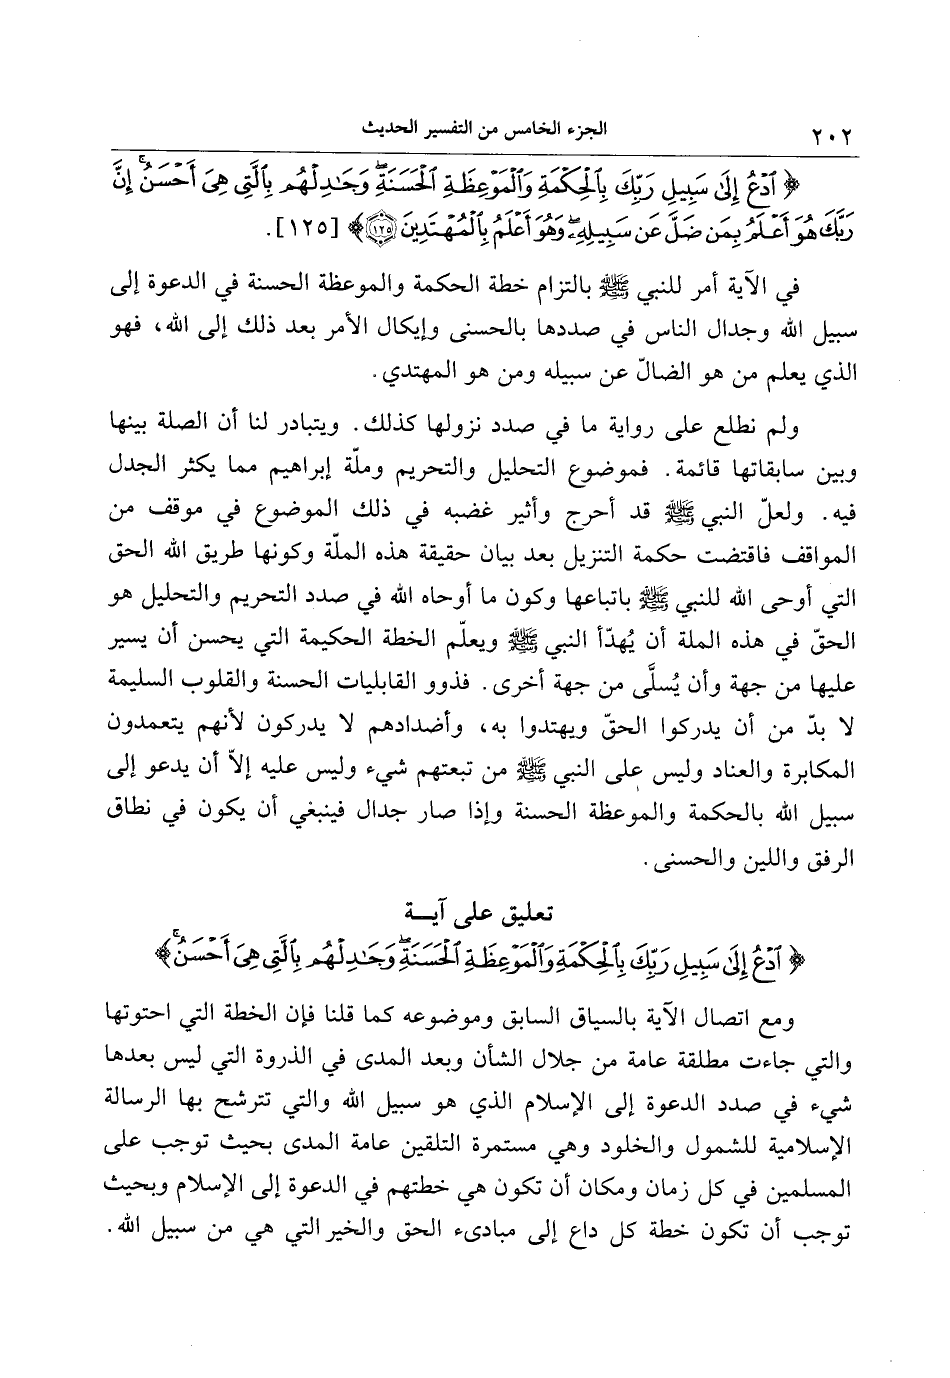 ٢٠٢ الجزء الخامس من التفسير الحديث
﴿ ٱدْعُ إِلَىٰ سَبِيلِ رَبِّكَ بِٱلْحِكْمَةِ وَٱلْمَوْعِظَةِ ٱلْحَسَنَةِ ۖ وَجَٰدِلْهُم بِٱلَّتِى هِىَ أَحْسَنُ ۚ إِنَّ
رَبَّكَ هُوَ أَعْلَمُ بِمَن ضَلَّ عَن سَبِيلِهِۦ ۖ وَهُوَ أَعْلَمُ بِٱلْمُهْتَدِينَ ١٢٥ ﴾ [١٢٥].
في الآية أمر للنبي ﷺ بالتزام خطة الحكمة والموعظة الحسنة في الدعوة إلى
سبيل الله وجدال الناس في صددها بالحسنى وإيكال الأمر بعد ذلك إلى الله، فهو
الذي يعلم من هو الضالّ عن سبيله ومن هو المهتدي.
ولم نطلع على رواية ما في صدد نزولها كذلك. ويتبادر لنا أن الصلة بينها
وبين سابقاتها قائمة. فموضوع التحليل والتحريم وملّة إبراهيم مما يكثر الجدل
فيه. ولعلّ النبي ﷺ قد أحرج وأثير غضبه في ذلك الموضوع في موقف من
المواقف فاقتضت حكمة التنزيل بعد بيان حقيقة هذه الملّة وكونها طريق الله الحق
التي أوحى الله للنبي ﷺ باتباعها وكون ما أوحاه الله في صدد التحريم والتحليل هو
الحقّ في هذه الملة أن يُهدّأ النبي ﷺ ويعلّم الخطة الحكيمة التي يحسن أن يسير
عليها من جهة وأن يُسلَّى من جهة أخرى. فذوو القابليات الحسنة والقلوب السليمة
لا بدّ من أن يدركوا الحقّ ويهتدوا به، وأضدادهم لا يدركون لأنهم يتعمدون
المكابرة والعناد وليس على النبي ﷺ من تبعتهم شيء وليس عليه إلاّ أن يدعو إلى
سبيل الله بالحكمة والموعظة الحسنة وإذا صار جدال فينبغي أن يكون في نطاق
الرفق واللين والحسنى.
تعليق على آيــة
﴿ ٱدْعُ إِلَىٰ سَبِيلِ رَبِّكَ بِٱلْحِكْمَةِ وَٱلْمَوْعِظَةِ ٱلْحَسَنَةِ ۖ وَجَٰدِلْهُم بِٱلَّتِى هِىَ أَحْسَنُ ۚ ﴾
ومع اتصال الآية بالسياق السابق وموضوعه كما قلنا فإن الخطة التي احتوتها
والتي جاءت مطلقة عامة من جلال الشأن وبعد المدى في الذروة التي ليس بعدها
شيء في صدد الدعوة إلى الإسلام الذي هو سبيل الله والتي تترشح بها الرسالة
الإسلامية للشمول والخلود وهي مستمرة التلقين عامة المدى بحيث توجب على
المسلمين في كل زمان ومكان أن تكون هي خطتهم في الدعوة إلى الإسلام وبحيث
توجب أن تكون خطة كل داع إلى مبادىء الحق والخير التي هي من سبيل الله.